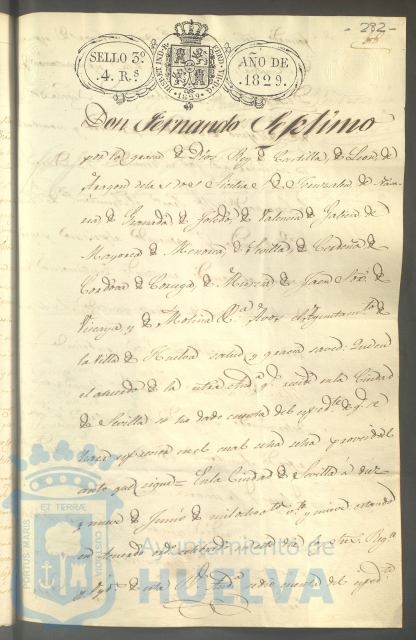 - 282 -
SELLO 3º
4. Rˢ
HISP. ET IND. R.
FERD. VII. D. G.
1829
AÑO DE
1829.
Don Fernando Septimo
por la gracia de Dios Rey de Castilla, de Leon de
Aragon de las dos Sicilias de Jerusalen de Nava
rra de Granada de Toledo de Valencia de Galicia de
Mayorca de Menorca de Sevilla de Cerdeña de
Cordova de Corcega de Murcia de Jaen Señor de
Vizcaya y de Molina &ª A vos el Ayuntamtº de
la Villa de Huelva salud y gracia saved: Que en
el acuerdo de la nuestra Audª qᵉ recide en la Ciudad
de Sevilla se ha dado cuenta del expedᵗᵉ de qᵉ se
hará expresion en el cual
qᵉ sigue = En la Ciudad de Sevilla á diez
y nueve de Junio de mil ochocᵗᵒˢ vᵗᵉ y nueve estando
en acuerdo
de esta Rˡ Audª se dio cuenta del exped
PORTUS MARIS
ET TERRAE
CUSTODIA
Ayuntamiento de
HUELVA